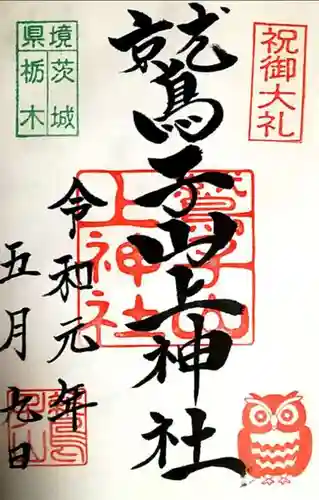 祝御大礼
鷲子山上神社
境茨城
県栃木
鷲子山上神社
令和元年
五月九日